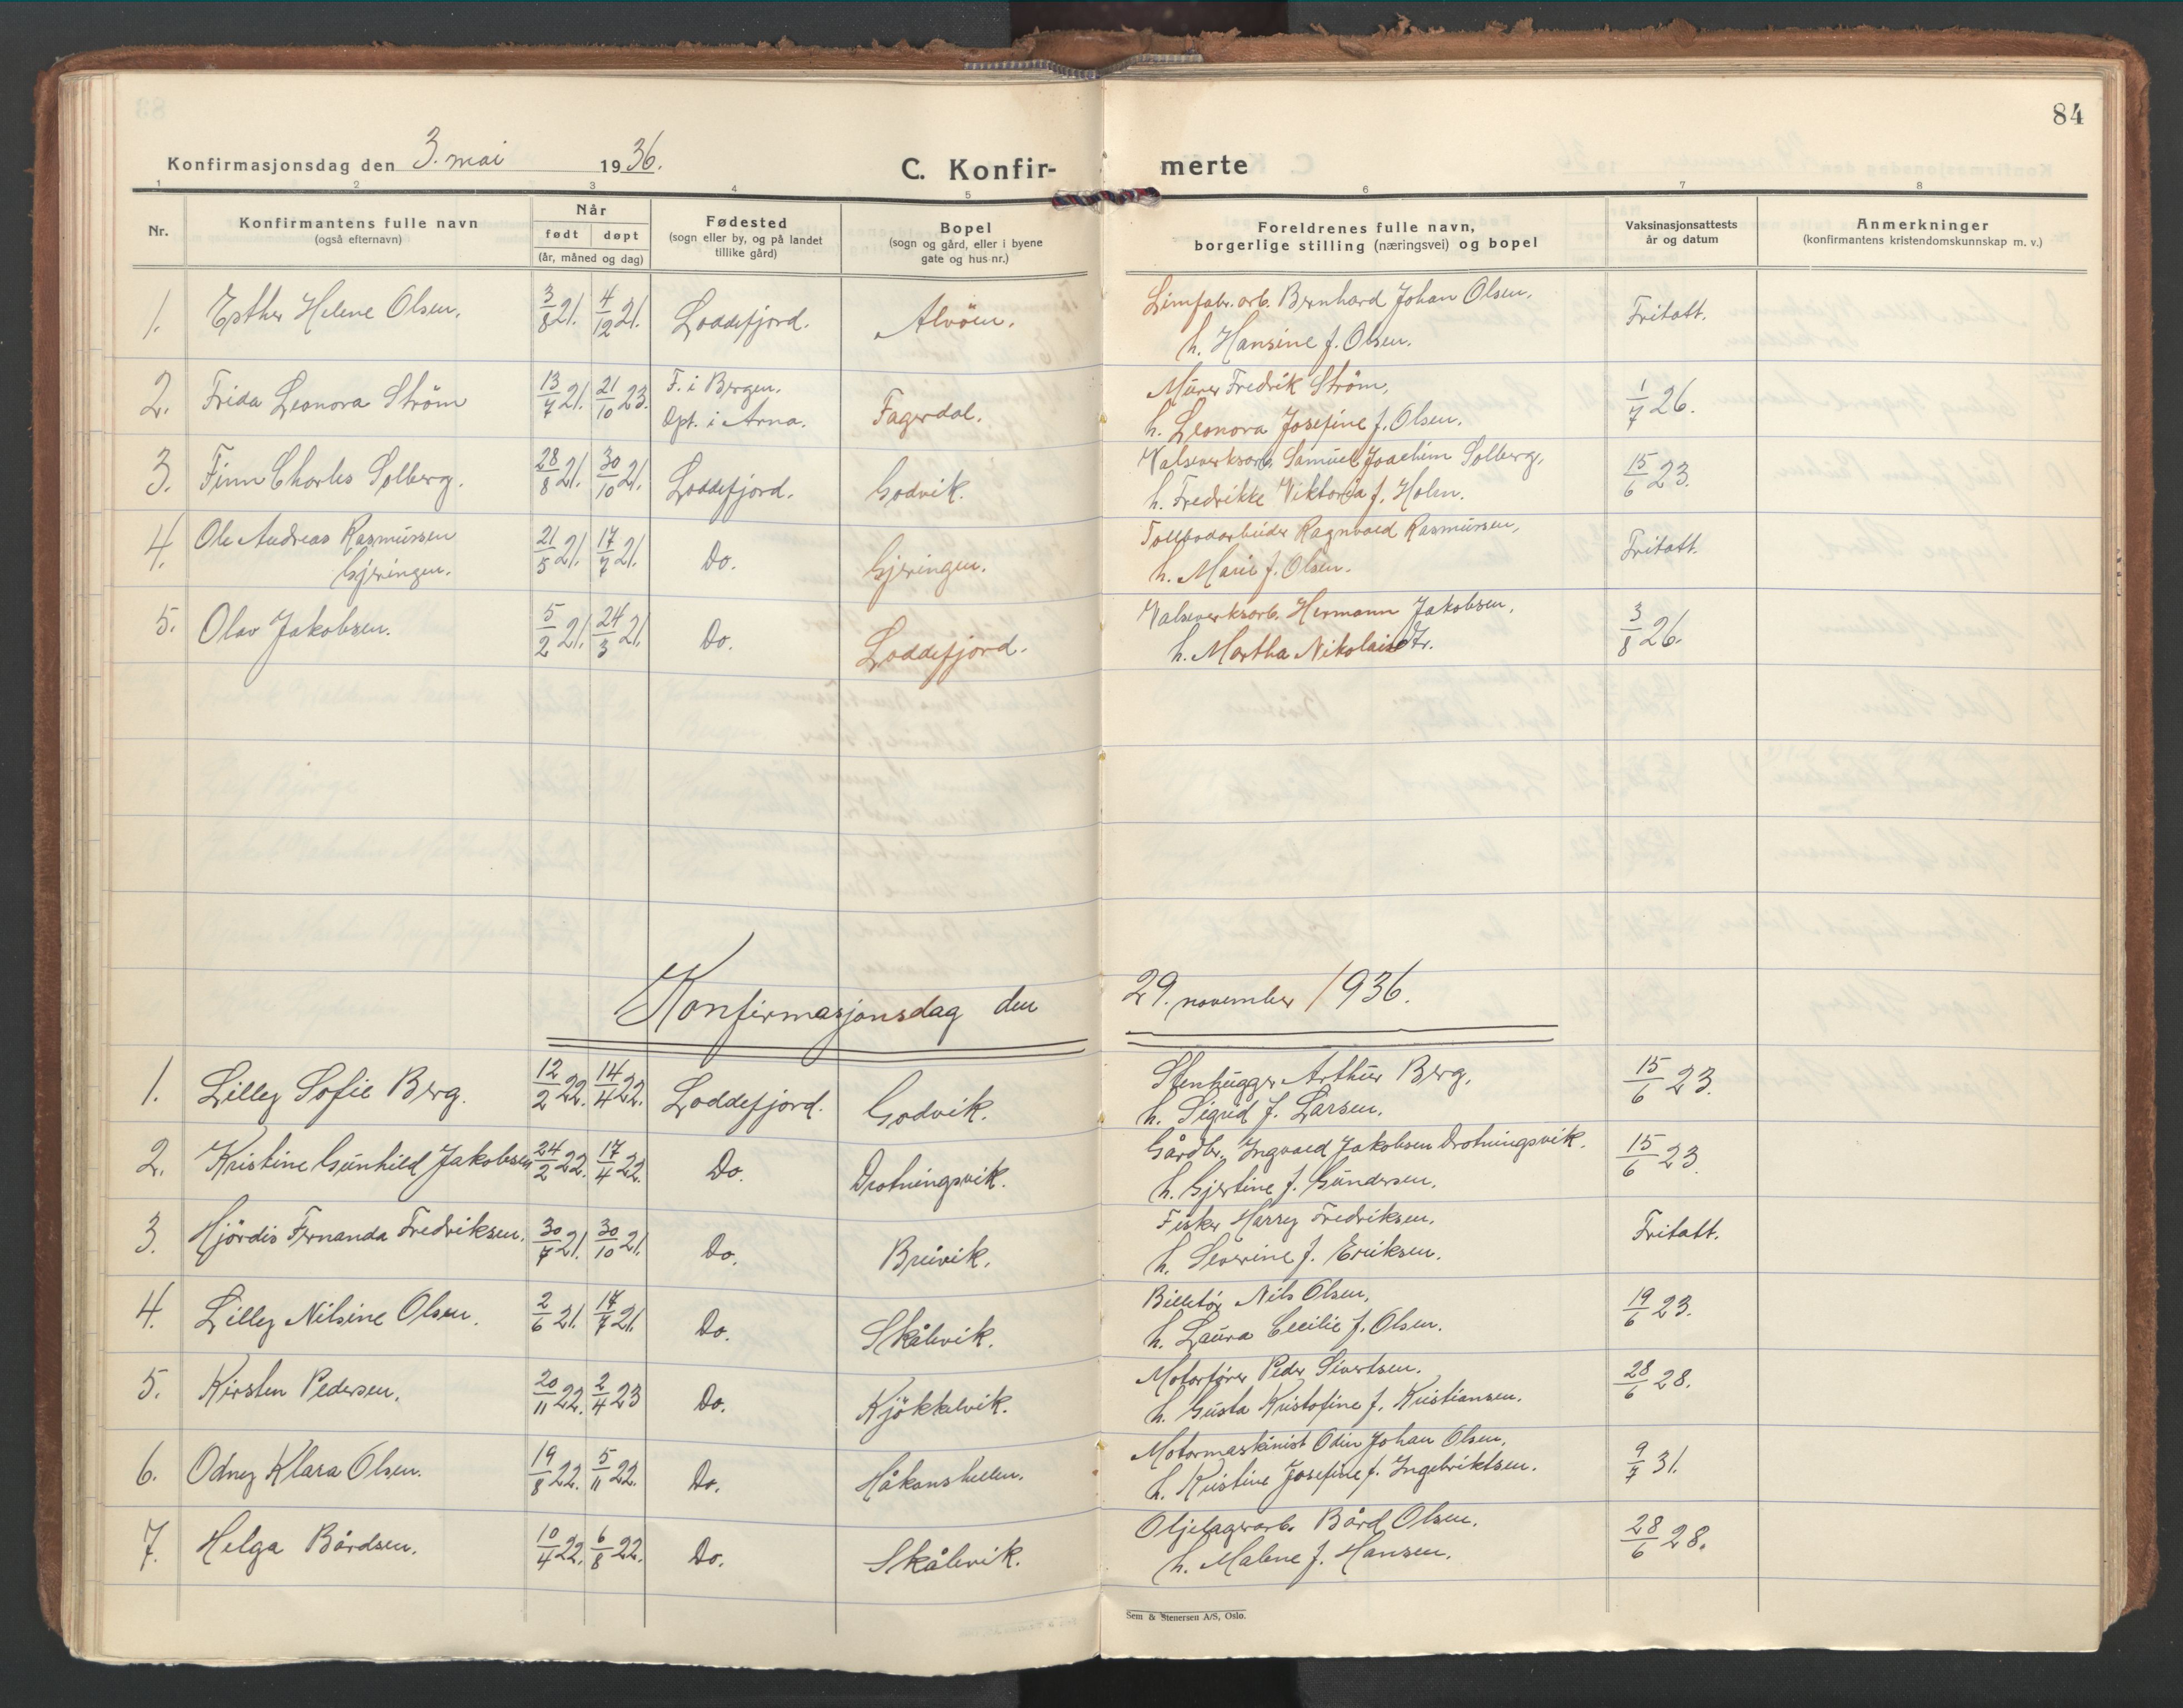 84
Konfirmasjonsdag den 3. mai 1936.
C. Konfir- merte
1 2 3 4 5 6 7 8
Nr.
Konfirmantens fulle navn
(også efternavn)
Når
født døpt
(år, måned og dag)
Fødested
(sogn eller by, og på landet
tillike gård)
Bopel
(sogn og gård, eller i byene
gate og hus nr.)
Foreldrenes fulle navn,
borgerlige stilling (næringsvei) og bopel
Vaksinasjonsattests
år og datum
Anmerkninger
(konfirmantens kristendomskunnskap m. v.)
1. Esther Helene Olsen. 3/8 21. 4/12 21. Loddefjord. Alvöen. Limfabr. arb. Bernhard Johan Olsen, Fritatt.
h. Hansine f. Olsen.
2. Frida Leonora Ström 13/7 21. 21/10 23. F. i Bergen. Fagerdal. Murer Fredrik Ström, 1/7 26.
Dpt. i Arna. h. Leonora Josefine f. Olsen.
3. Finn Charles Solberg. 28/8 21. 30/10 21. Loddefjord. Godvik. Valseverksarb. Samuel Joachim Solberg, 15/6 23.
h. Fredrikke Viktoria f. Holen.
4. Ole Andreas Rasmussen 21/5 21. 17/7 21. Do. Gjeringen. Tollbodarbeider Ragnvald Rasmussen, Fritatt.
Gjeringen. h. Marie f. Olsen.
5. Olav Jakobsen. 5/2 21. 24/3 21. Do. Loddefjord. Valseverksarb. Hermann Jakobsen, 3/8 26.
h. Martha Nikolaisdtr.
Konfirmasjonsdag den 29. november 1936.
1. Lilley Sofie Berg. 12/2 22. 14/4 22. Loddefjord. Godvik. Stenhugger Arthur Berg, 15/6 23.
h. Sigrid f. Larsen.
2. Kristine Gunhild Jakobsen 24/2 22. 17/4 22. Do. Drotningsvik. Gårdbr. Ingvald Jakobsen Drotningsvik. 15/6 23.
h. Gjertine f. Gundersen.
3. Hjördis Fernanda Fredriksen. 30/7 21. 30/10 21. Do. Breivik. Fisker Harry Fredriksen, Fritatt.
h. Severine f. Eriksen.
4. Lilley Nilsine Olsen. 2/6 21. 17/7 21. Do. Skålevik. Billetör Nils Olsen, 19/6 23.
h. Laura Cecilie f. Olsen.
5. Kirsten Pedersen. 20/11 22. 2/4 23 Do. Kjökkelvik. Motorförer Peder Sivertsen. 28/6 28.
h. Gusta Kristofine f. Kristiansen.
6. Odney Klara Olsen. 19/8 22. 5/11 22. Do. Håkonshellen. Motormaskinist Odin Johan Olsen, 9/7 31.
h. Kristine Josefine f. Ingebriktsen.
7. Helga Bårdsen. 10/4 22. 6/8 22. Do. Skålevik. Oljelagerarb. Bård Olsen. 28/6 28.
h. Malene f. Hansen.
Sem & Stenersen A/S, Oslo.